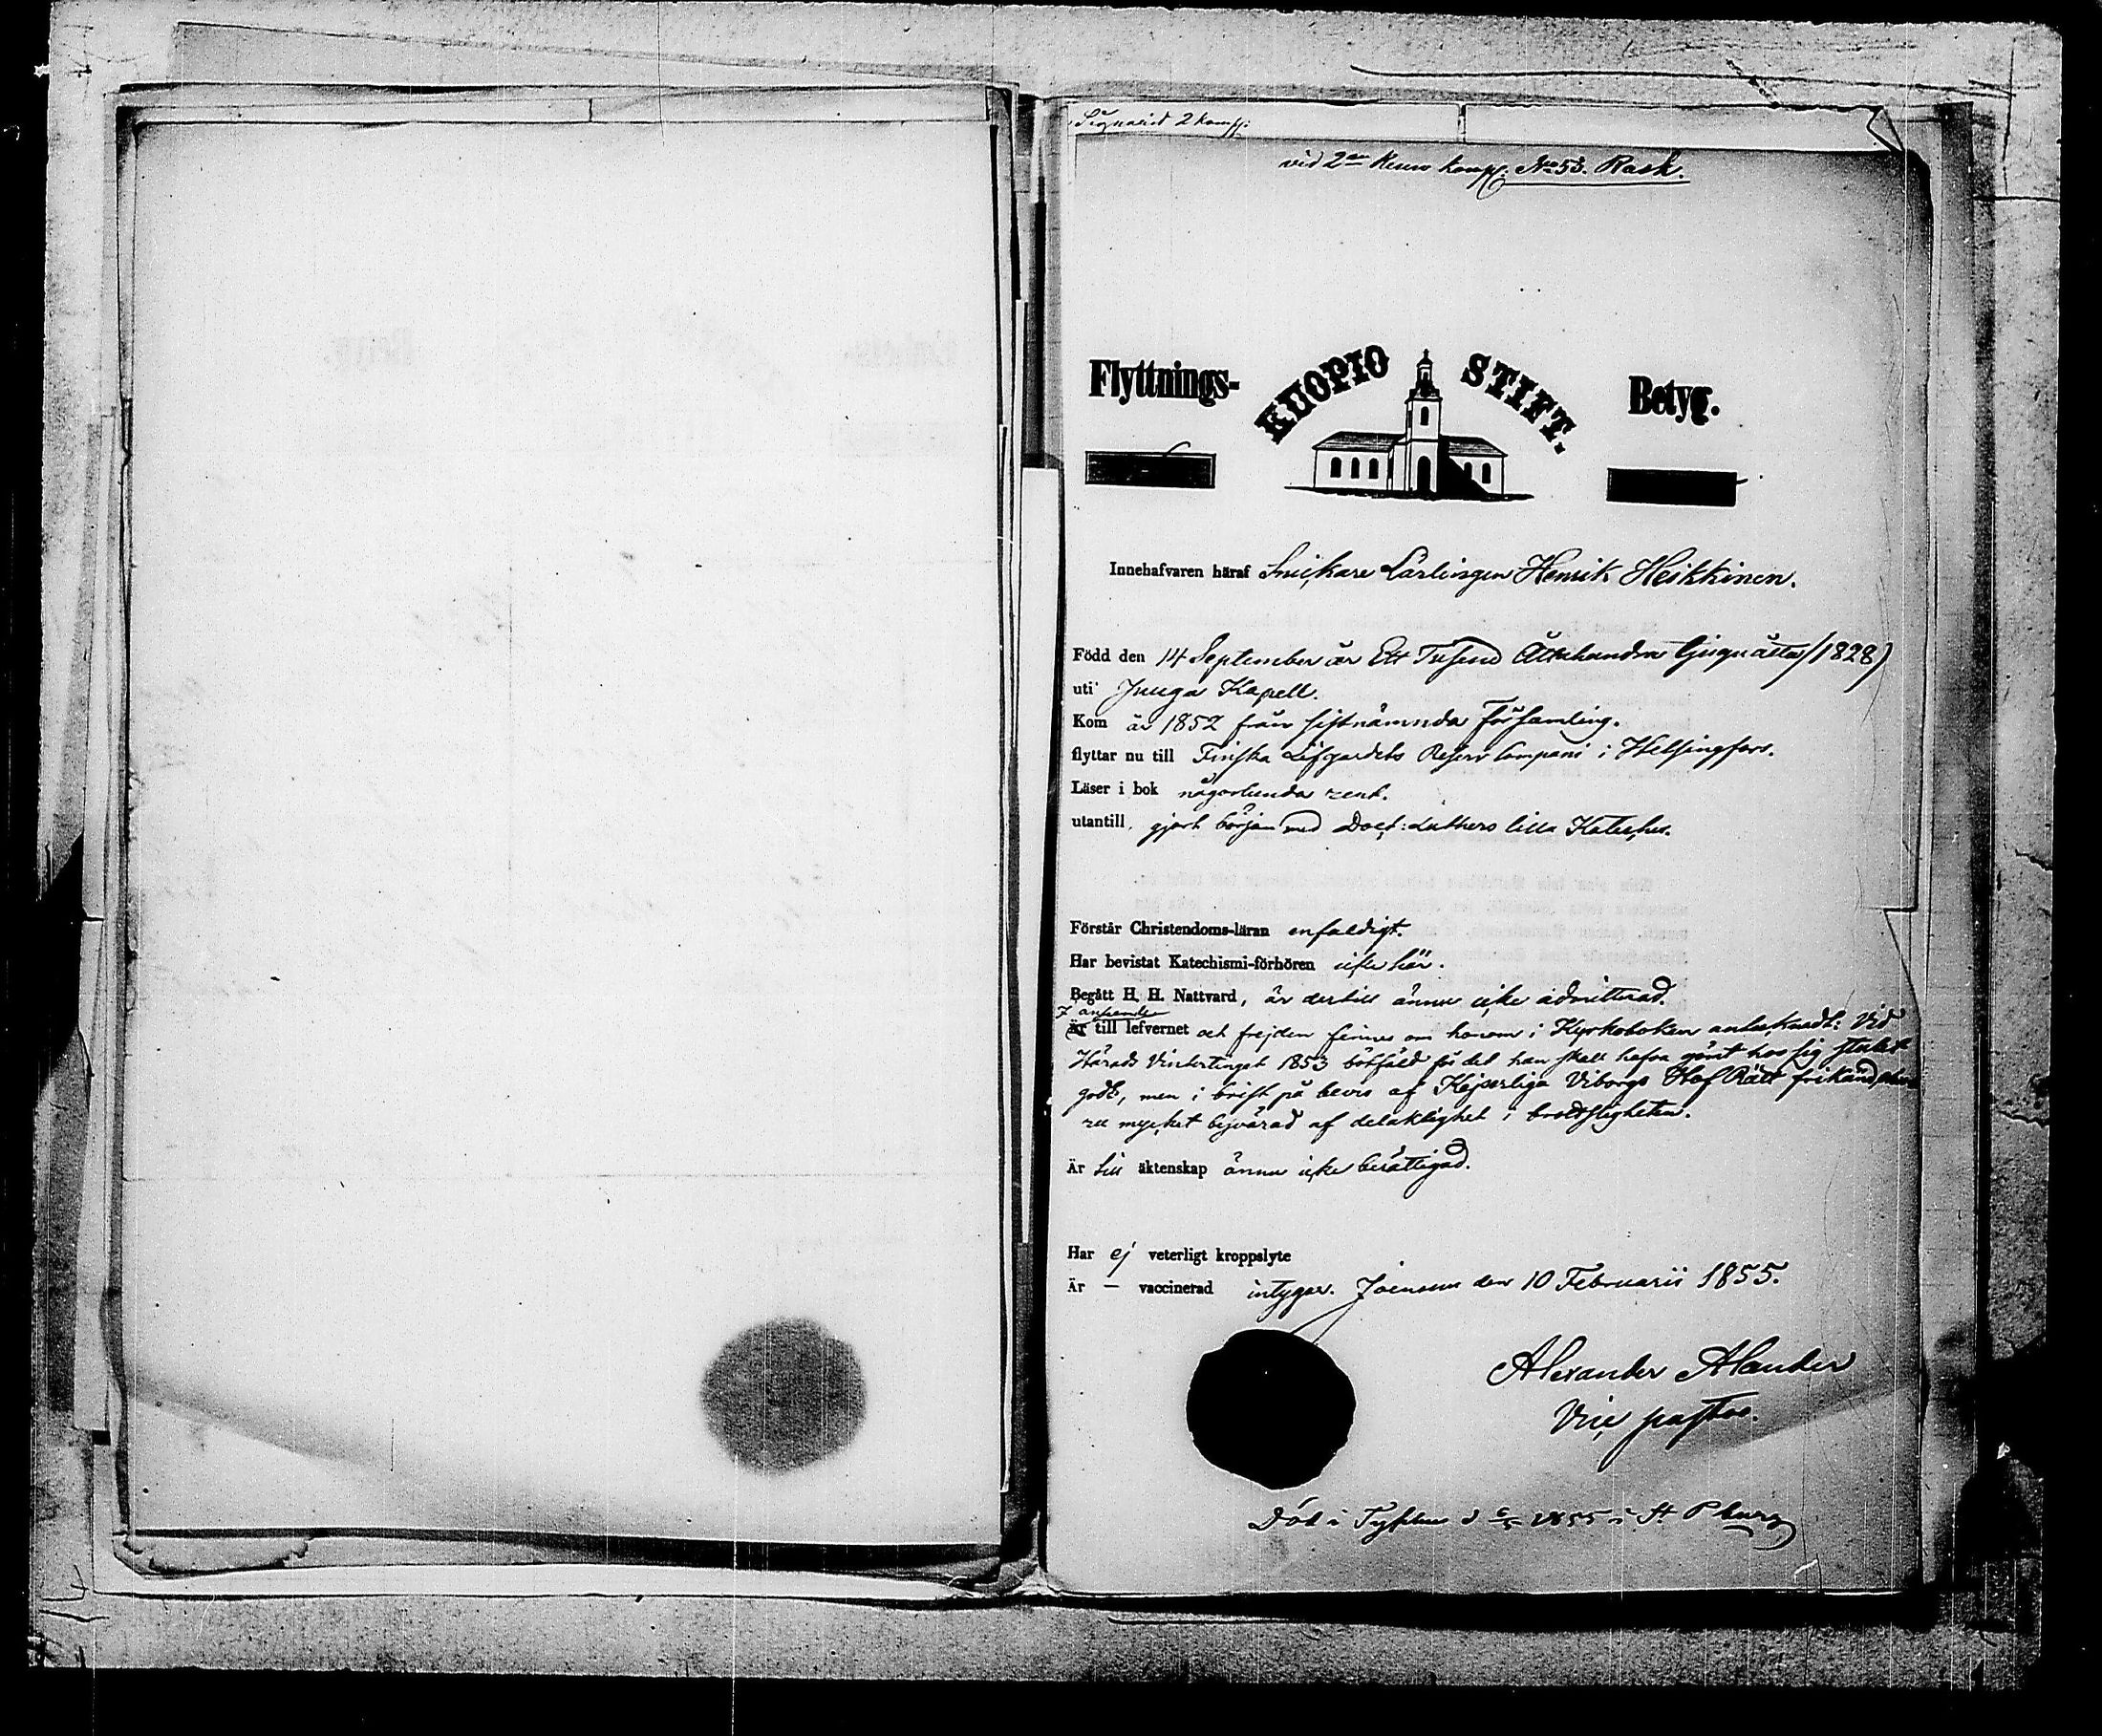 Signarid 2 komp:
vid 2en Reserv komp: No 53. Rask.
Flyttnings- KUOPIO STIFT. Betyg.
Innehafvaren häraf Snickare Lärlingen Henrik Heikkinen.
Född den 14 September år Ett Tusend Åttahundra tjuguåtta (1828)
uti Juuga Kapell.
Kom år 1852 från sistnämnda Församling.
flyttar nu till Finska Lifgardets Reserv Compani i Helsingfors.
Läser i bok någorlunda rent.
utantill, gjort början med Doct: Luthers lilla Kateches.
Förstår Christendoms-läran enfaldigt.
Har bevistat Katechismi-förhören icke här.
Begått H. H. Nattvard, är dertill ännu icke admitterad.
I anseende
är till lefvernet och frejden finnes om honom i Kyrkoboken antecknadt: Vid
Härads Vintertinget 1853 botfäld för det han skall hafva gömt hos sig stulet
godt, men i brist på bevis af Kejserliga Viborgs Hof Rätt frikänd,
mycket besvärad af delaktighet i brottsligheten.
Är till äktenskap ännu icke berättigad.
Har ej veterligt kroppslyte
Är — vaccinerad intygar. Joensuu den 10 Februarii 1855.
Alexander Alander
Vice pastor.
Död i Typhus d 1855 i St Pburg